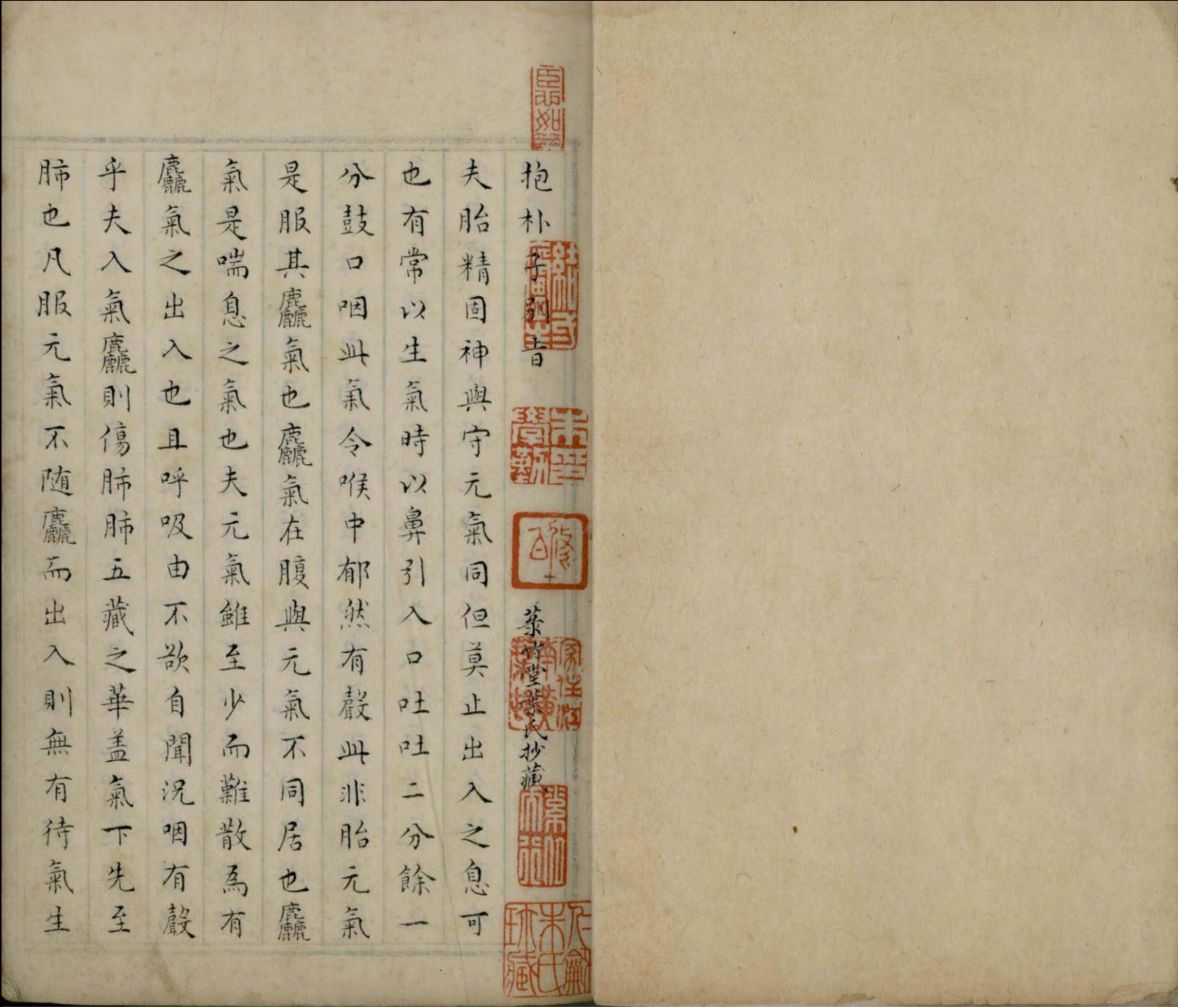 抱朴子別旨 菉竹堂葉氏抄藏
夫胎精固神與守元氣同但莫止出入之息可
也有常以生氣時以鼻引入口吐吐二分餘一
分鼓口咽此氣令喉中郁然有聲此非胎元氣
是服其麤氣也麤氣在腹與元氣不同居也麤
氣是喘息之氣也夫元氣雖至少而難散爲有
麤氣之出入也且呼吸由不欲自聞況咽有聲
乎夫入氣麤則傷肺肺五藏之華盖氣下先至
肺也凡服元氣不随麤而出入則無有待氣生